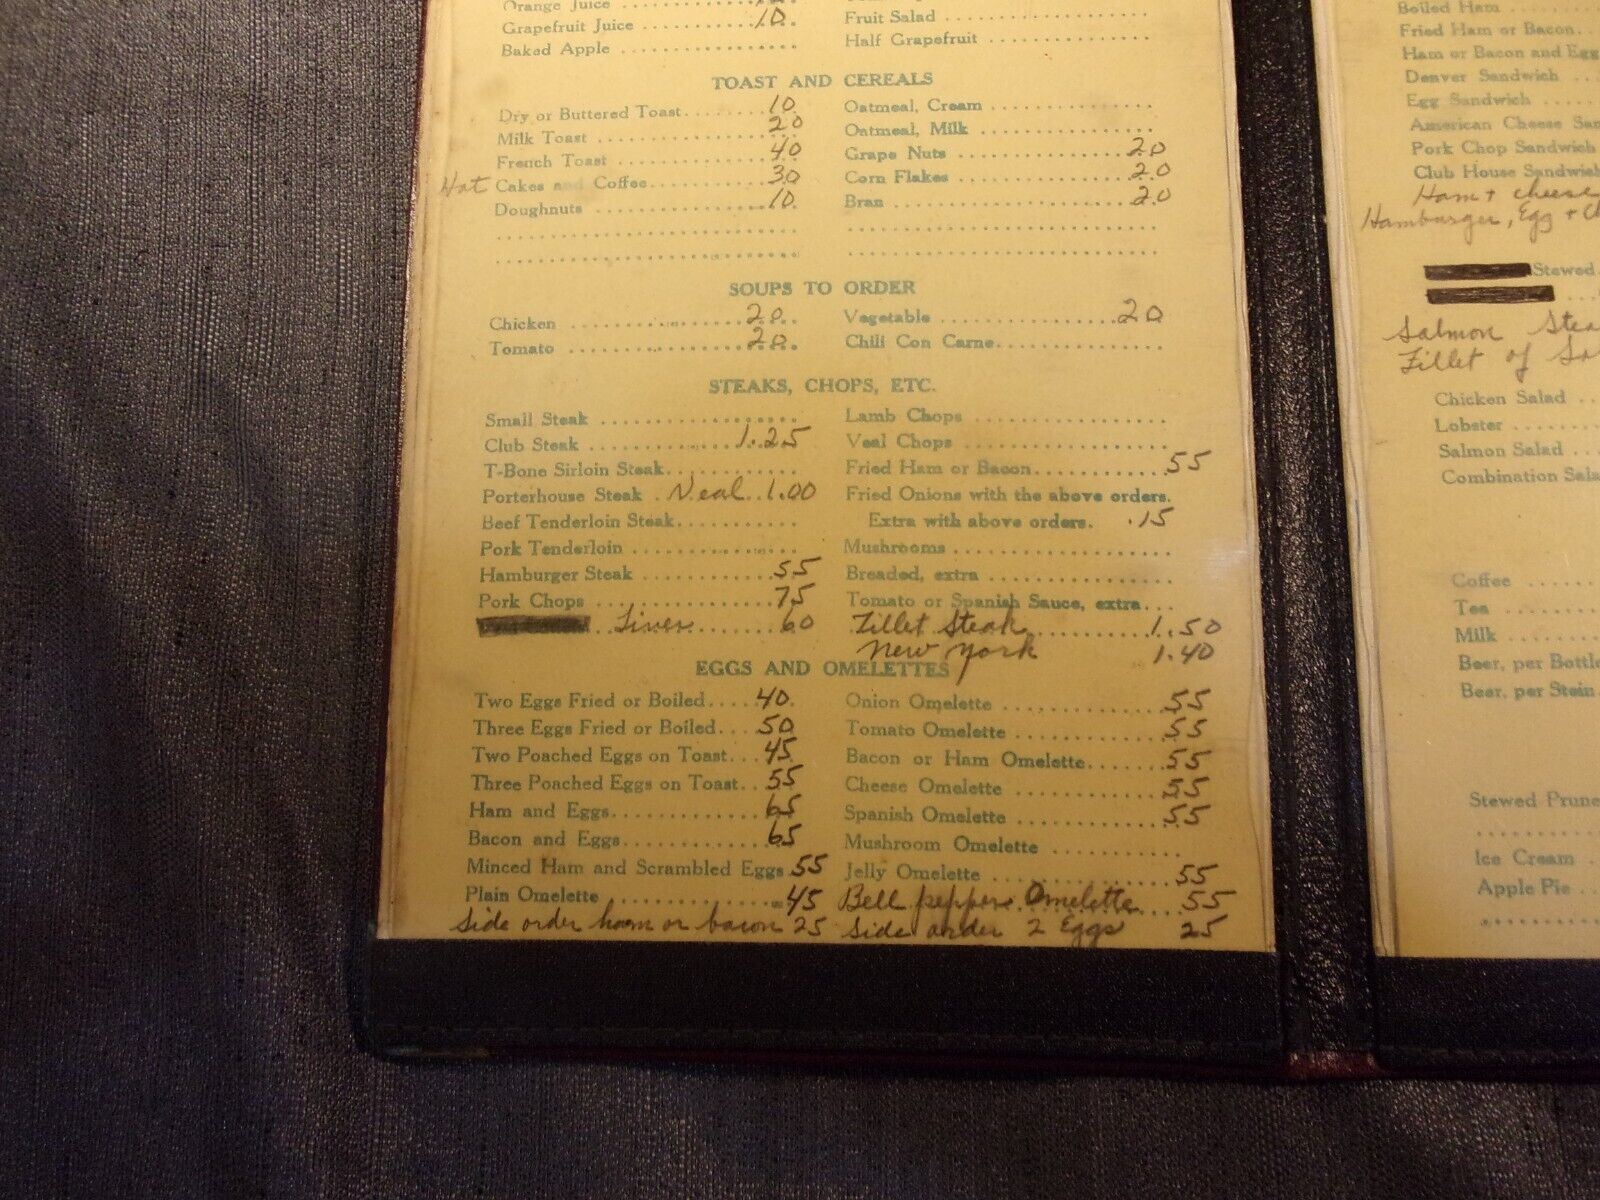 Orange Juice
Grapefruit Juice 10
Baked Apple
Fruit Salad
Half Grapefruit
TOAST AND CEREALS
Dry or Buttered Toast 10
Milk Toast 20
French Toast 40
Hot Cakes and Coffee 30
Doughnuts 10
Oatmeal, Cream
Oatmeal, Milk
Grape Nuts 20
Corn Flakes 20
Bran 20
SOUPS TO ORDER
Chicken 20
Tomato 20
Vegetable 20
Chili Con Carne
STEAKS, CHOPS, ETC.
Small Steak
Club Steak 1.25
T-Bone Sirloin Steak
Porterhouse Steak Veal 1.00
Beef Tenderloin Steak
Pork Tenderloin
Hamburger Steak 55
Pork Chops 75
Liver 60
Lamb Chops
Veal Chops
Fried Ham or Bacon 55
Fried Onions with the above orders.
Extra with above orders. .15
Mushrooms
Breaded, extra
Tomato or Spanish Sauce, extra
Fillet Steak 1.50
New York 1.40
EGGS AND OMELETTES
Two Eggs Fried or Boiled 40
Three Eggs Fried or Boiled 50
Two Poached Eggs on Toast 45
Three Poached Eggs on Toast 55
Ham and Eggs 65
Bacon and Eggs 65
Minced Ham and Scrambled Eggs 55
Plain Omelette 45
Side order ham or bacon 25
Onion Omelette 55
Tomato Omelette 55
Bacon or Ham Omelette 55
Cheese Omelette 55
Spanish Omelette 55
Mushroom Omelette
Jelly Omelette 55
Bell pepper Omelette 55
Side order 2 Eggs 25
Boiled Ham
Fried Ham or Bacon
Ham or Bacon and Egg
Denver Sandwich
Egg Sandwich
American Cheese San
Pork Chop Sandwich
Club House Sandwich
Ham + cheese
Hamburger, Egg + Ch
Stewed
Salmon Stea
Fillet of So
Chicken Salad
Lobster
Salmon Salad
Combination Sala
Coffee
Tea
Milk
Beer, per Bottle
Beer, per Stein
Stewed Prune
Ice Cream
Apple Pie